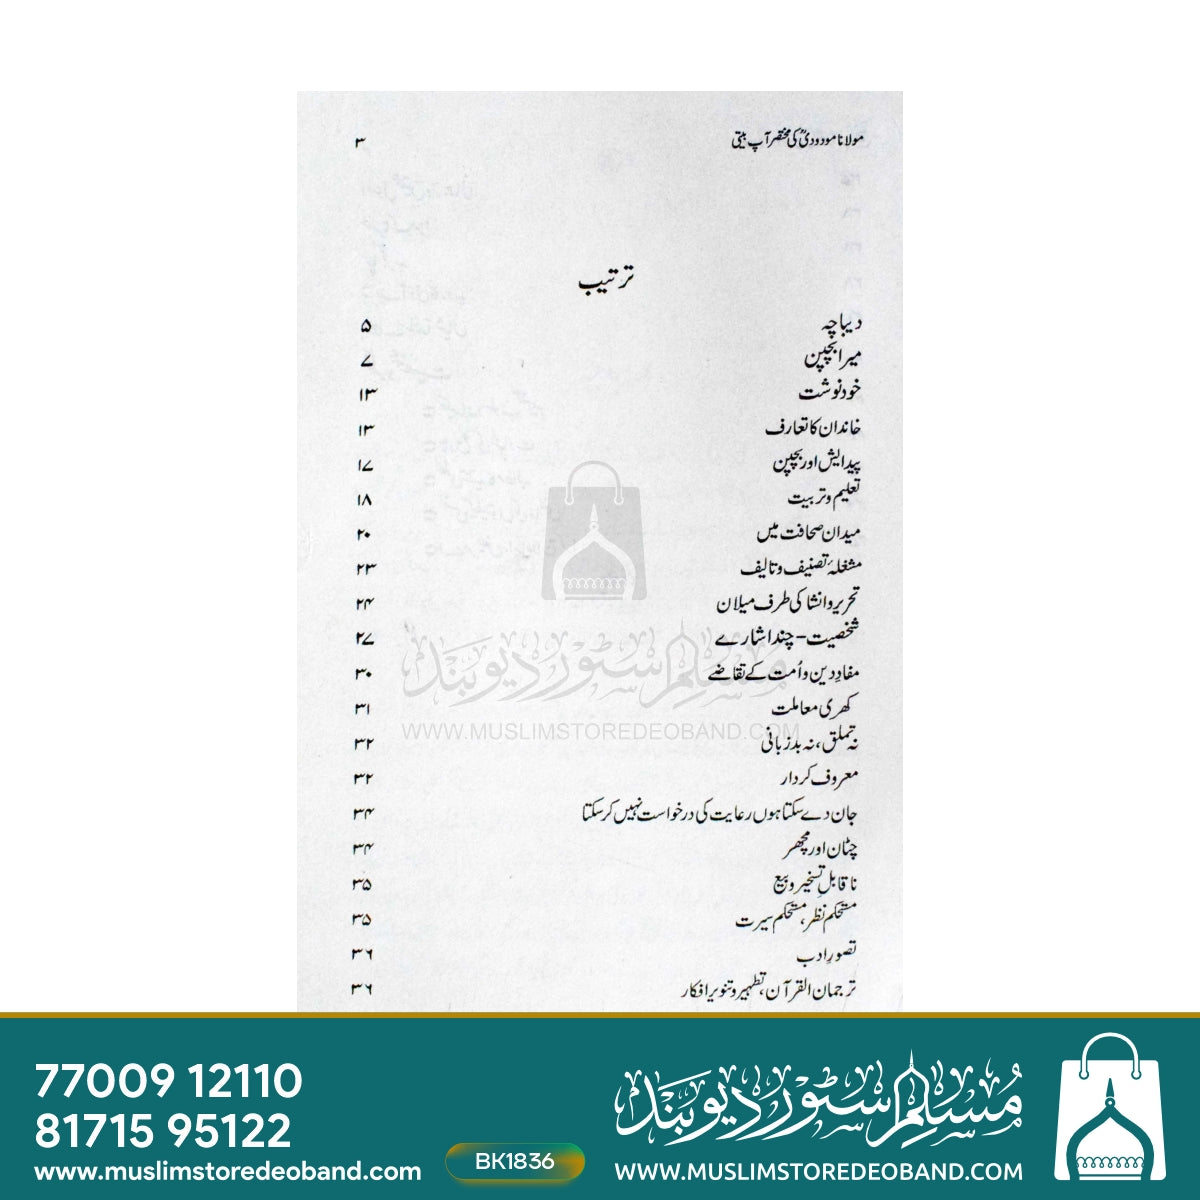 مولانا مودودیؒ کی مختصر آپ بیتی ۳
ترتیب
دیباچہ ۵
میرا بچپن ۷
خودنوشت ۱۳
خاندان کا تعارف ۱۳
پیدایش اور بچپن ۱۷
تعلیم و تربیت ۱۸
میدان صحافت میں ۲۰
مشغلۂ تصنیف و تالیف ۲۳
تحریر و انشا کی طرف میلان ۲۴
شخصیت – چند اشارے ۲۷
مفادِ دین و اُمت کے تقاضے ۳۰
کھری معاملت ۳۱
نہ تملق، نہ بدزبانی ۳۲
معروف کردار ۳۲
جان دے سکتا ہوں رعایت کی درخواست نہیں کر سکتا ۳۴
چٹان اور مچھر ۳۴
ناقابلِ تسخیر و بیع ۳۵
مستحکم نظر، مستحکم سیرت ۳۵
تصورِ ادب ۳۶
ترجمان القرآن، تطہیر و تنویر افکار ۳۶
مسلم سٹور دیوبند
WWW.MUSLIMSTOREDEOBAND.COM
77009 12110
81715 95122
www.muslimstoredeoband.com
BK1836
مُسلم سٹور دیوبند
WWW.MUSLIMSTOREDEOBAND.COM